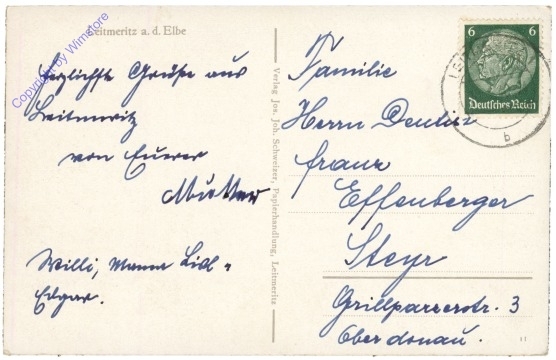 Leitmeritz a. d. Elbe
Herzlichste Grüße aus
Leitmeritz
von Euerer
Mutter
Willi, Mama Lidl -
Edgar.
Verlag Jos. Joh. Schweizer, Papierhandlung, Leitmeritz
Familie
Herrn
Franz
Effenberger
Steyr
Grillparzerstr. 3
Oberdonau.
11
6 6
Deutsches Reich
b
Copyright by Wimstore